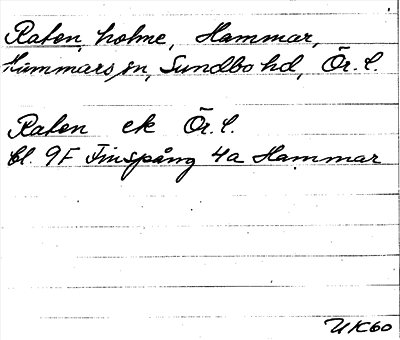 Rafen, holme, Hammar,
Hammars sn, Sundbo hd, Ör. l.
Rafen ek Ör. l.
bl. 9F Finspång 4a Hammar
UK60